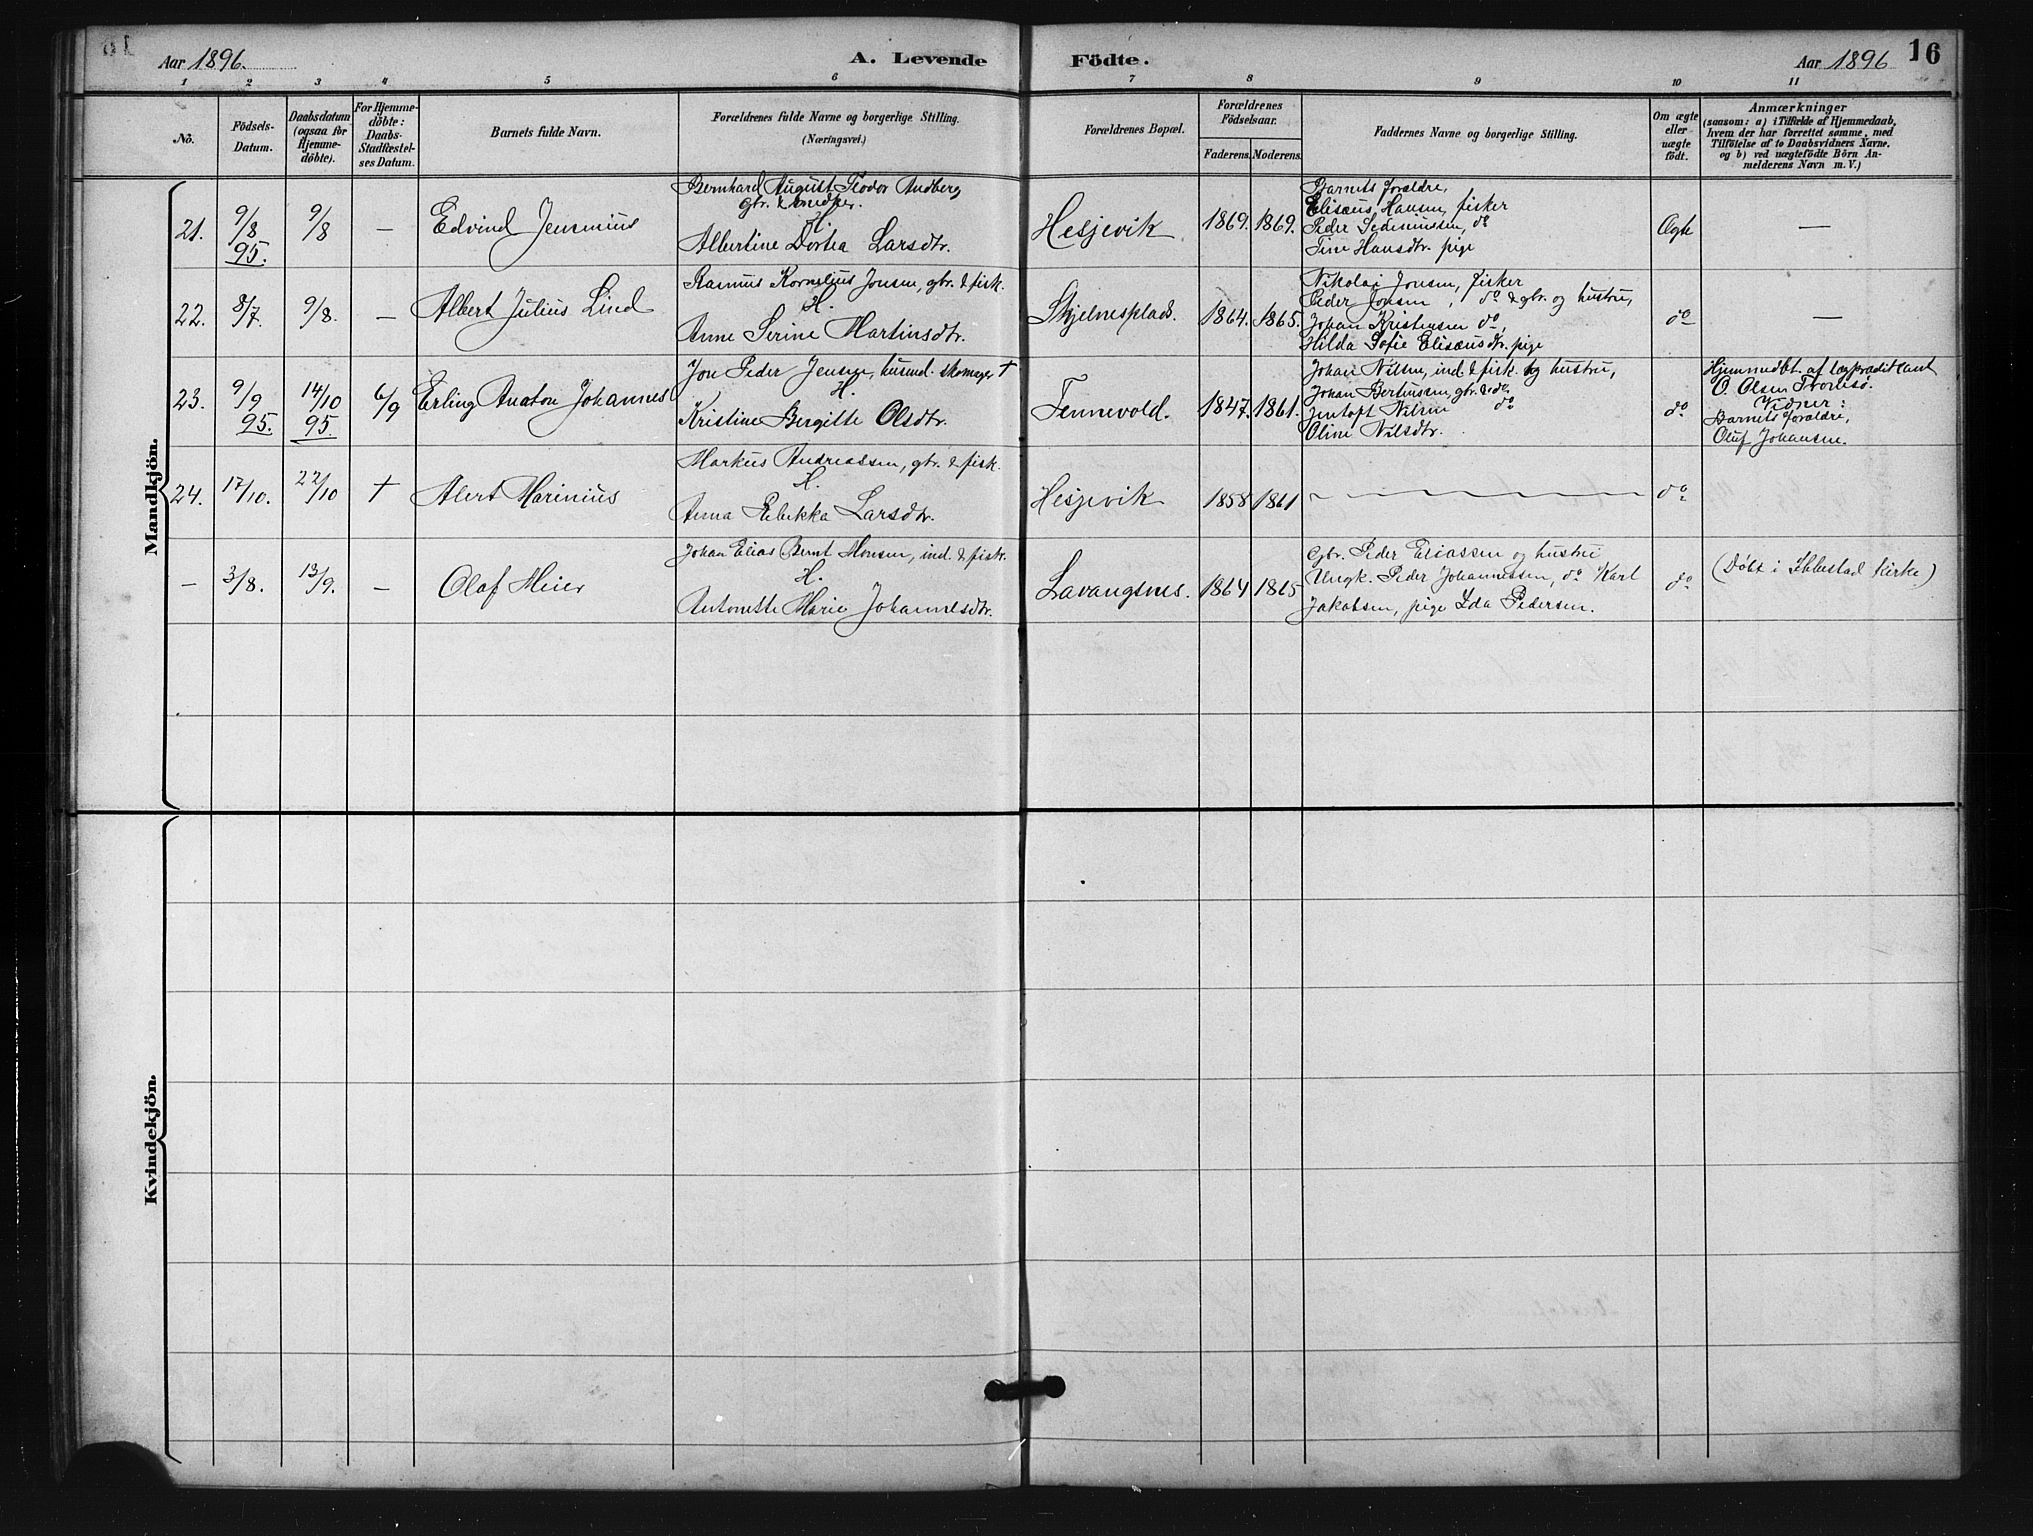 Aar 1896. A. Levende Födte. Aar 1896 16
1 2 3 4 5 6 7 8 9 10 11
No. Födsels-Datum. Daabsdatum (ogsaa for Hjemme-döbte). For Hjemme-döbte: Daabs-Stadfæstel-ses Datum. Barnets fulde Navn. Forældrenes fulde Navne og borgerlige Stilling. (Næringsvei.) Forældrenes Bopæl. Forældrenes Födselsaar. Faderens. Moderens. Faddernes Navne og borgerlige Stilling. Om ægte eller uægte födt. Anmærkninger
(saasom: a) i Tilfælde af Hjemmedaab,
hvem der har forrettet samme, med
Tilföielse af to Daabsvidners Navne,
og b) ved uægtefödte Börn An-
melderens Navn m. V.)
Mandkjön.
21. 9/8 95. 9/8 — Edvind Jensenius
Bernhard August Teodor Andberg
gbr. & smed
H.
Albertine Dortea Larsdtr.
Hesjevik 1869. 1869.
Barnets foraldre,
Elisæus Hansen, fisker
Peder do
Tine Hansdtr. pige
Ægte —
22. 8/7. 9/8. — Albert Julius Lind
Rasmus Kornelius Jonsen, gbr. & fisk.
H.
Anne Serine Martinsdtr.
Skjelnesplads. 1864. 1865.
Nikolai Jonsen, fisker
Peder Jonsen, do & gbr. og hustru,
Johan Kristensen do,
Hilda Sofie Elisæusdtr. pige
do —
23. 9/9 95. 14/10 95 6/9 Erling Anaton Johannes
Jon Peder Jensen, husmd. skomager +
H.
Kristine Bergitte Olsdtr.
Tennevold. 1847. 1861.
Johan Nilsen, ind. & fisk. og hustru,
Johan Bertinssen, gbr. & do
Jentoft Nilsen do
Oline Nilsdtr.
do
Hjemmedbt. af
O. Olsen
Vidner:
Barnets foraldre,
Oluf Johansen.
24. 17/10. 22/10 + Alert Marinius
Markus Andreassen, gbr. & fisk.
H.
Anna Rebekka Larsdtr.
Hesjevik 1858 1861 do
— 3/8. 13/9. — Olaf Meier
Johan Elias Bernt Monsen, ind. & fisk.
H.
Antonette Marie Johannesdtr.
Lavangsnes. 1864 1865
Gbr. Peder Eliassen og hustru
Ungk. Peder Johannessen, do Karl
Jakobsen, pige Ida Pedersen.
do (Døbt i Ibbestad kirke)
Kvindekjön.